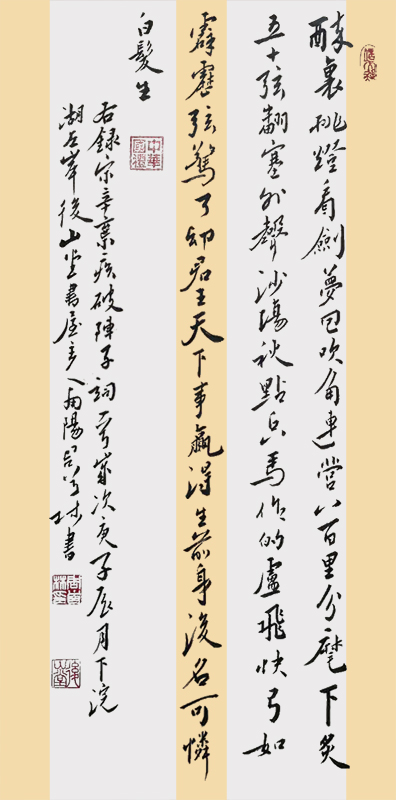 醉裏挑燈看劍夢回吹角連營八百里分麾下炙
五十弦翻塞外聲沙場秋點兵馬作的盧飛快弓如
霹靂弦驚了却君王天下事贏得生前身後名可憐
白髮生
中華
右錄宋辛棄疾破陣子詞一首歲次庚子辰月下浣
湖左岸後山堂書屋主人南陽林書